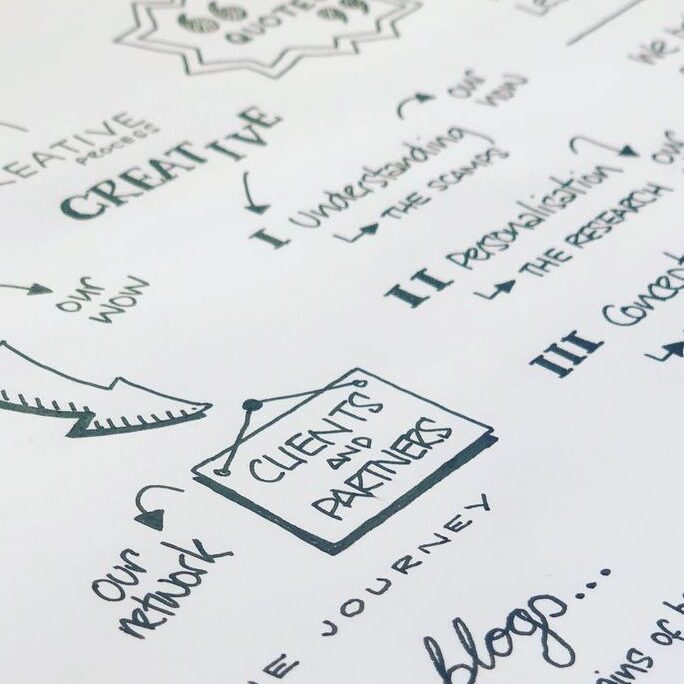 QUOTES
We
our
how
REATIVE
PROCESS
CREATIVE
I Understanding
THE SCAMPS
our
II Personalisation
THE RESEARCH
III Concept
our
wow
CLIENTS
AND
PARTNERS
our
network
E JOURNEY
blogs...
ins of